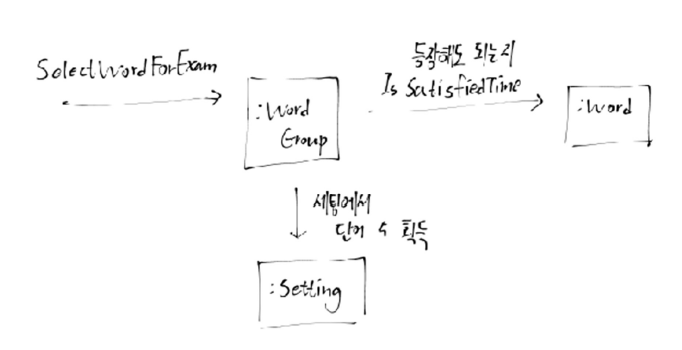 SolectWordForExam
:Word
Group
해도 되는지
Is SatisfiedTime
:Word
세팅에서
단어 수 획득
:Setting